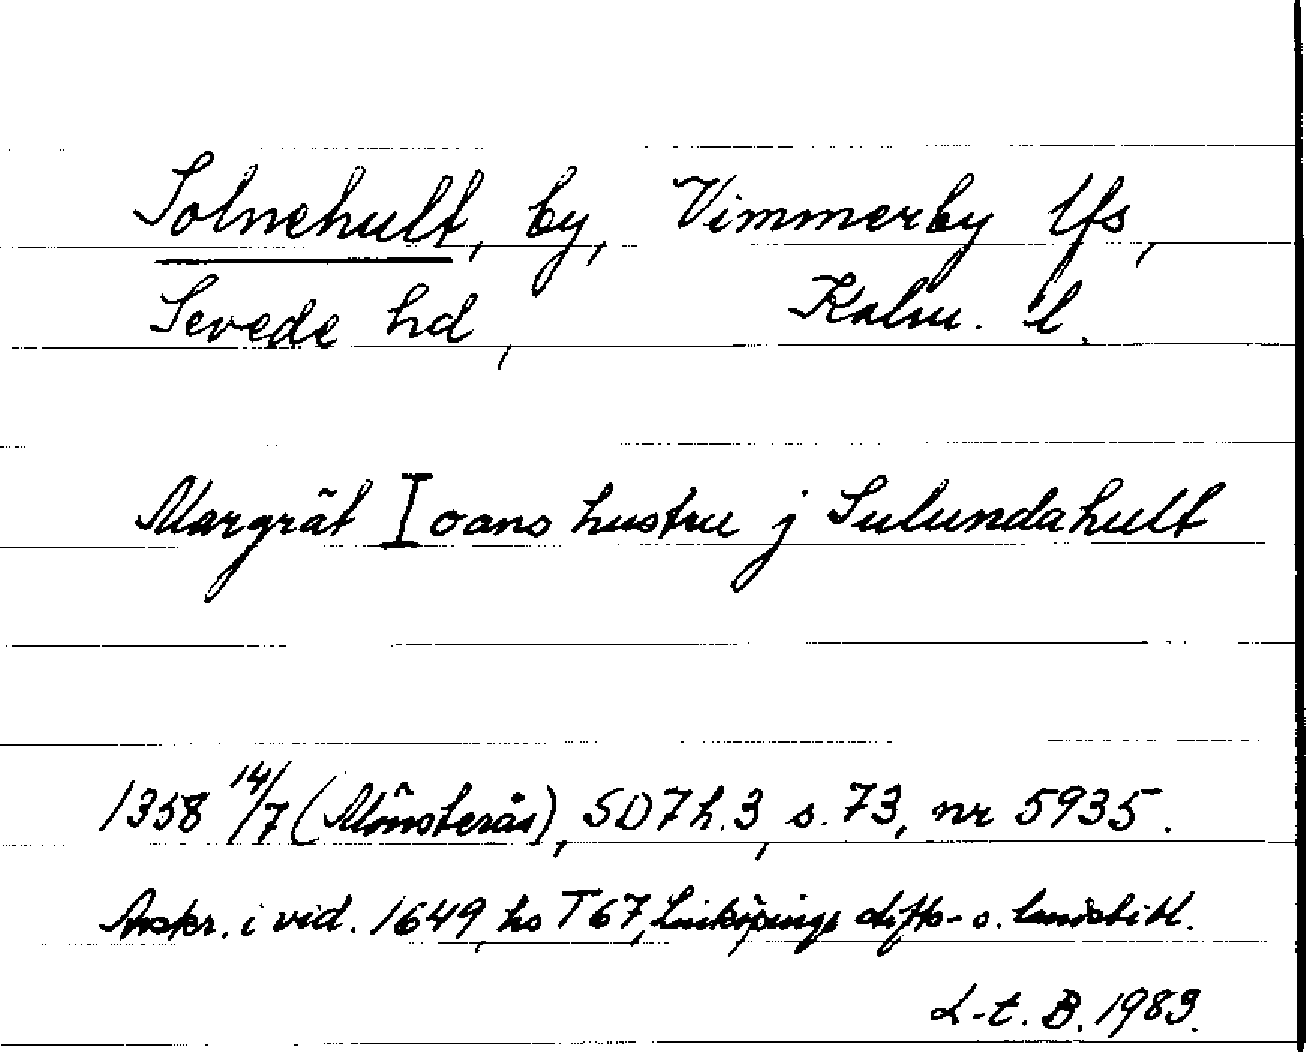 Solnehult, by, Vimmerby lfs,
Sevede hd, Kalm. l.
Margrät Ioans hustru j Sulundahult
1358 14/7 (Mönsterås), SD7 h.3, s. 73, nr 5935.
Avskr. i vid. 1649, hs T 67, Linköpings stifts- o. landsbibl.
L-t. B. 1983.